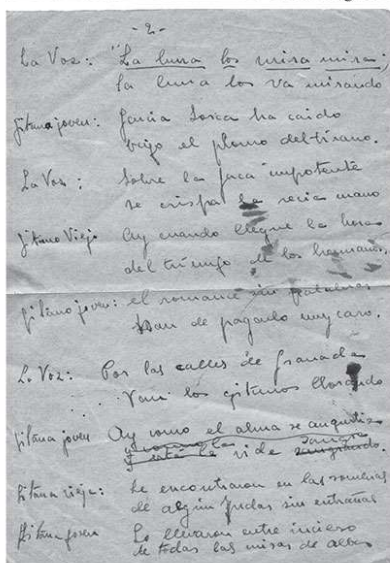 -2-
La Voz: "La luna los mira mira,
la luna los va mirando
Gitana joven: García Lorca ha caido
bajo el plomo del tirano.
La Voz: Sobre la faca impotente
se crispa la recia mano
Gitano Viejo Ay cuando llegue la hora
del triunfo de los hermanos.
Gitano joven: el romance sin palabras
han de pagarlo muy caro.
La Voz: Por las calles de Granada
Van los gitanos llorando
Gitana joven Ay como el alma se angustia
la vida sangrando.
Gitana vieja: Le encontraron en las sombras
de algún Judas sin entrañas
Gitana joven Lo llevaron entre incienso
de todas las misas de alba